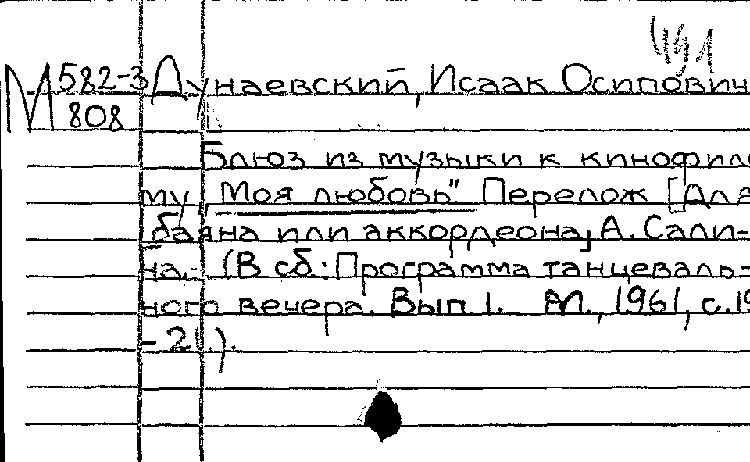 491
М 582-3 Дунаевский, Исаак Осипович
808
Блюз из музыки к кинофиль
му "Моя любовь" Перелож [для
баяна или аккордеона] А. Сали-
на.- (В сб.: Программа танцеваль-
ного вечера. Вып 1. М., 1961, с.19
-21.).